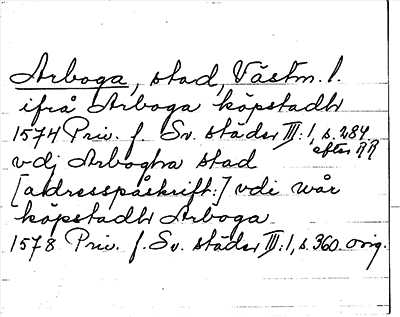 Arboga, stad, Västm. l.
ifrå Arboga köpstadh
1574 Priv. f. Sv. städer III:1, s. 284
efter RR
vdj Arboghra stad
[adresspåskrift:] vdi wår
köpstadh Arboga
1578 Priv. f. Sv. städer III:1, s. 360. orig.